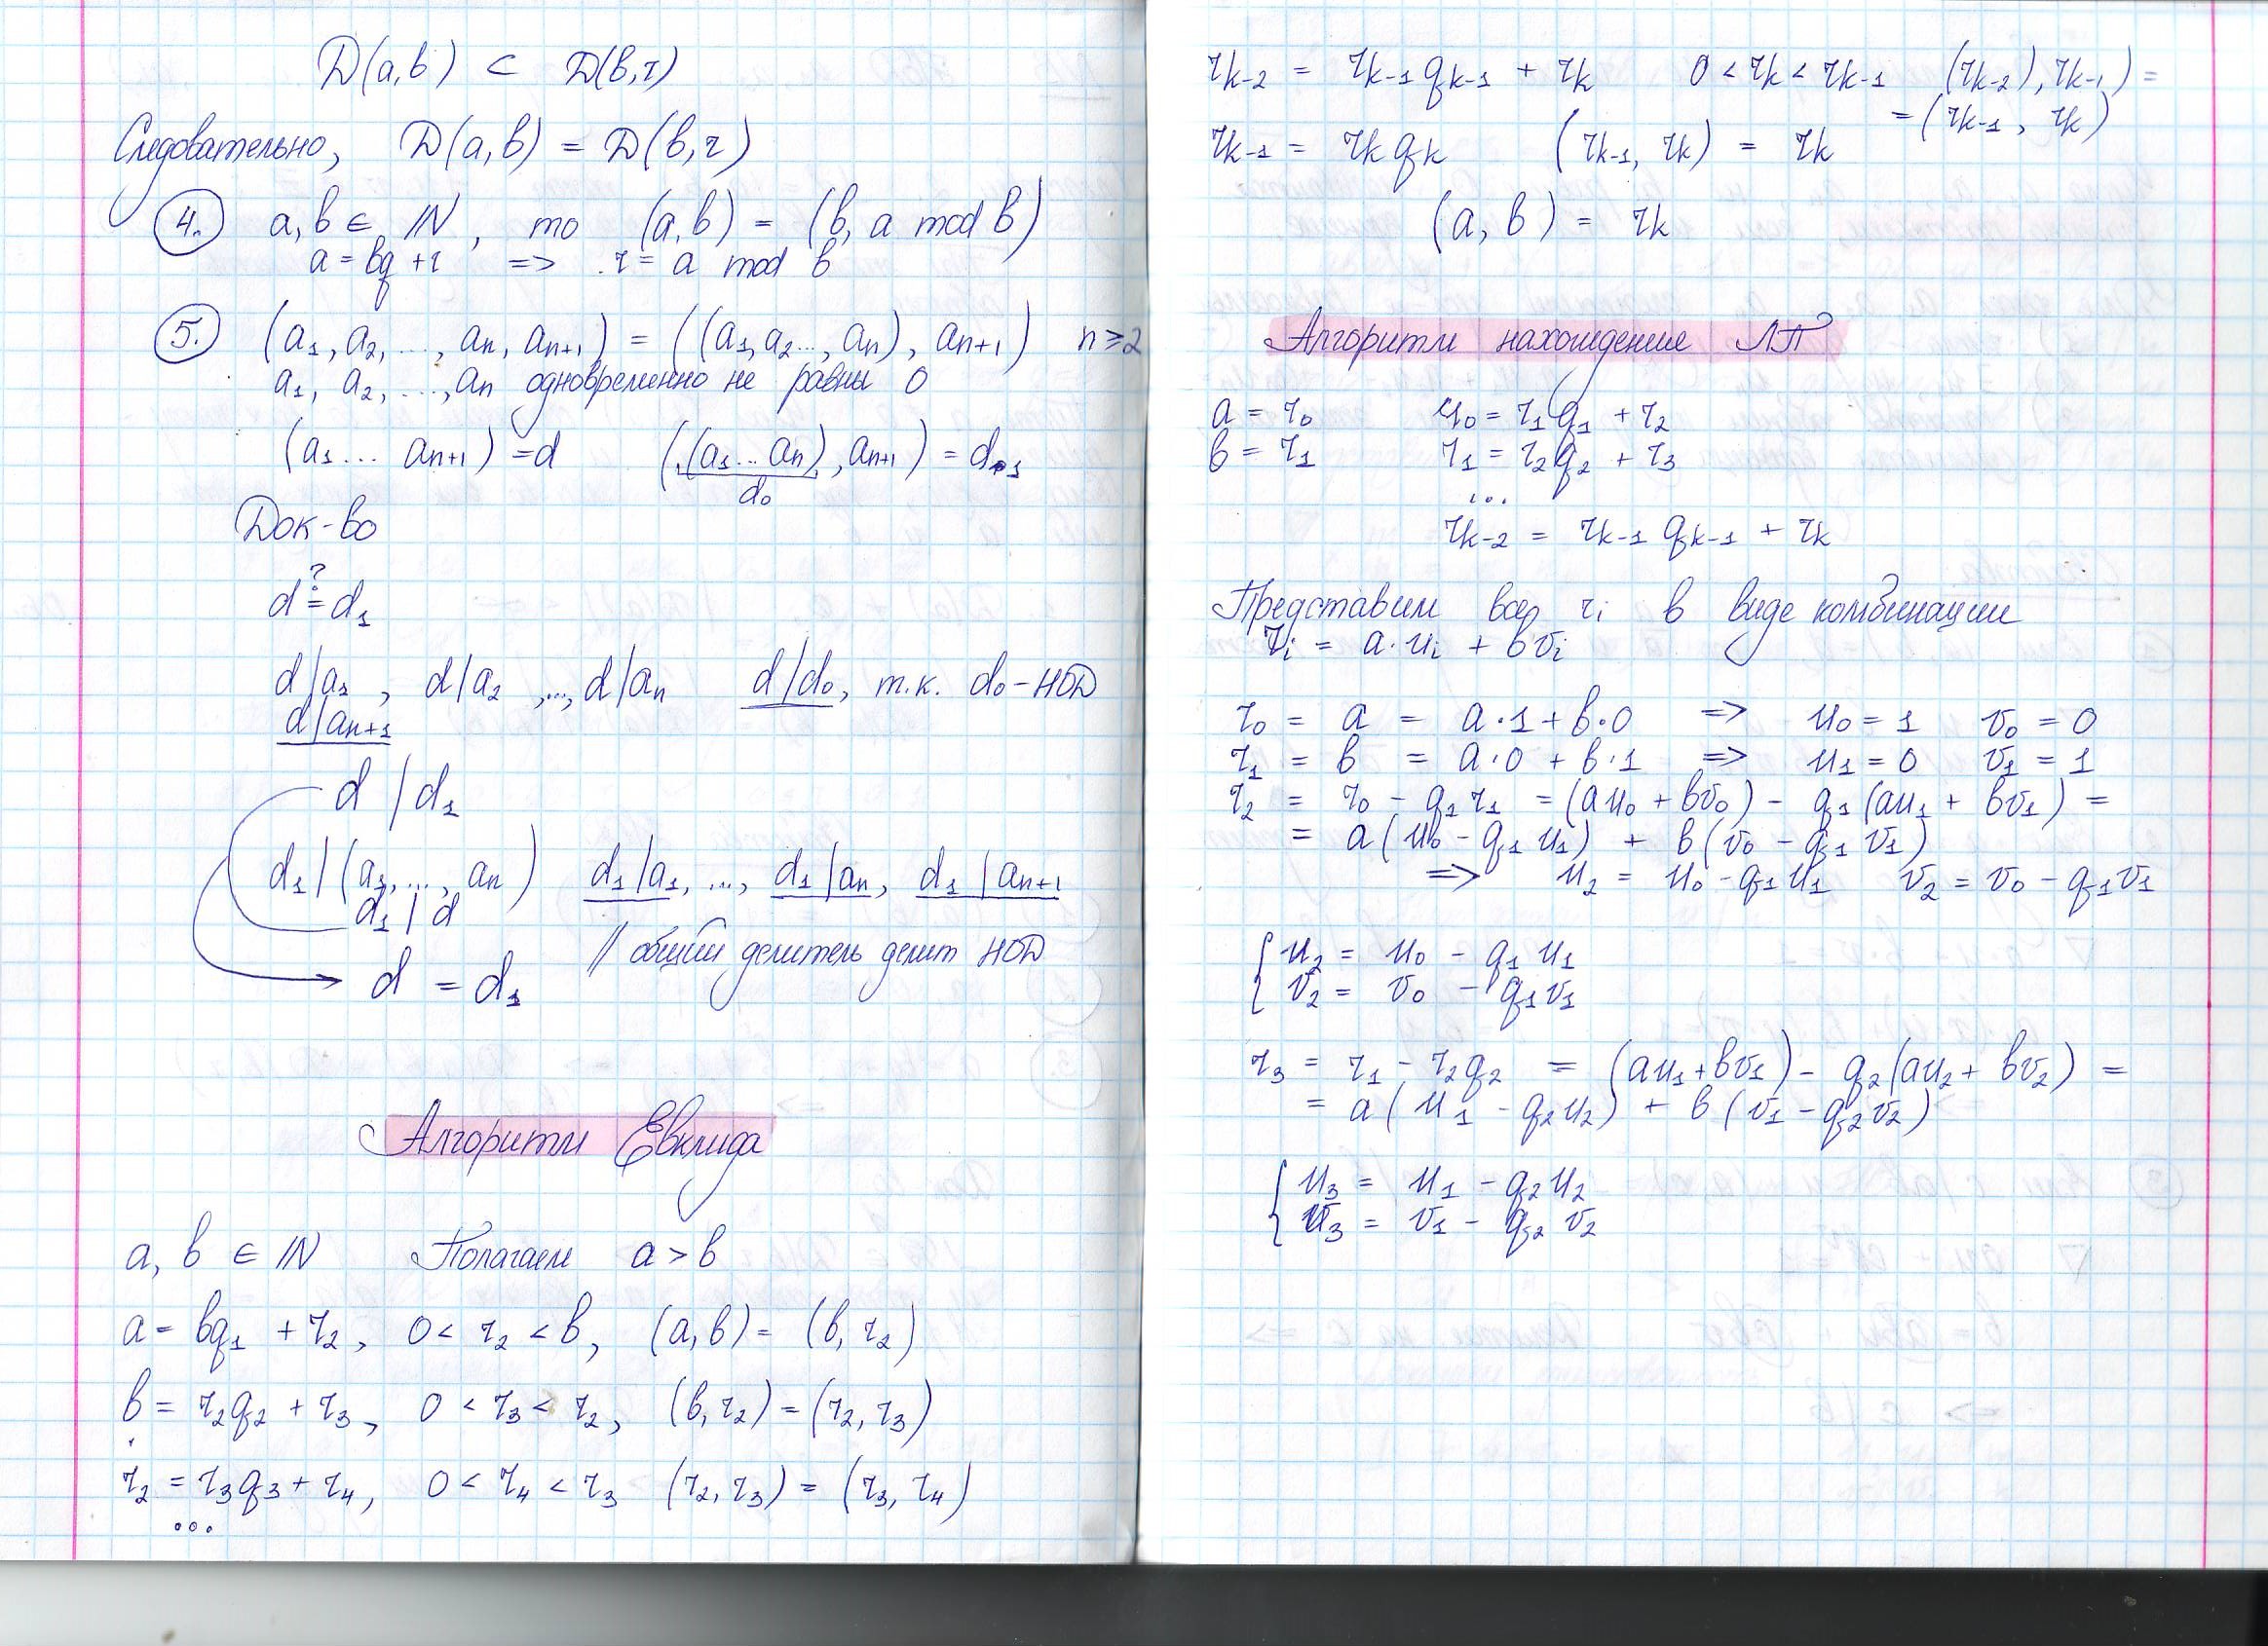 D(a,b) ⊂ D(b,r)
Следовательно, D(a,b) = D(b,r)
4. a,b ∈ ℕ, то (a,b) = (b, a mod b)
a = bq + r => r = a mod b
5. (a₁, a₂, ..., aₙ, aₙ₊₁) = ((a₁, a₂..., aₙ), aₙ₊₁) n ≥ 2
a₁, a₂, ..., aₙ одновременно не равны 0
(a₁ ... aₙ₊₁) = d ((a₁ ... aₙ), aₙ₊₁) = d₁
d₀
Док-во
?
d = d₁
d | a₁, d | a₂, ..., d | aₙ d | d₀, т.к. d₀ - НОД
d | aₙ₊₁
d | d₁
d₁ | (a₁, ..., aₙ) d₁ | a₁, ..., d₁ | aₙ, d₁ | aₙ₊₁
d₁ | d
// общий делитель делит НОД
d = d₁
Алгоритм Евклида
a, b ∈ ℕ Полагаем a > b
a = bq₁ + r₂, 0 < r₂ < b, (a,b) = (b, r₂)
b = r₂q₂ + r₃, 0 < r₃ < r₂, (b, r₂) = (r₂, r₃)
r₂ = r₃q₃ + r₄, 0 < r₄ < r₃ (r₂, r₃) = (r₃, r₄)
...
rₖ₋₂ = rₖ₋₁ qₖ₋₁ + rₖ 0 < rₖ < rₖ₋₁ (rₖ₋₂), rₖ₋₁) =
= (rₖ₋₁, rₖ)
rₖ₋₁ = rₖ qₖ (rₖ₋₁, rₖ) = rₖ
(a, b) = rₖ
Алгоритм нахождение ЛП
a = r₀ r₀ = r₁q₁ + r₂
b = r₁ r₁ = r₂q₂ + r₃
...
rₖ₋₂ = rₖ₋₁ qₖ₋₁ + rₖ
Представим все rᵢ в виде комбинации
rᵢ = a·uᵢ + bvᵢ
r₀ = a = a·1 + b·0 => u₀ = 1 v₀ = 0
r₁ = b = a·0 + b·1 => u₁ = 0 v₁ = 1
r₂ = r₀ - q₁r₁ = (au₀ + bv₀) - q₁(au₁ + bv₁) =
= a(u₀ - q₁u₁) + b(v₀ - q₁v₁)
=> u₂ = u₀ - q₁u₁ v₂ = v₀ - q₁v₁
{ u₂ = u₀ - q₁u₁
v₂ = v₀ - q₁v₁
r₃ = r₁ - r₂q₂ = (au₁ + bv₁) - q₂(au₂ + bv₂) =
= a(u₁ - q₂u₂) + b(v₁ - q₂v₂)
{ u₃ = u₁ - q₂u₂
v₃ = v₁ - q₂v₂